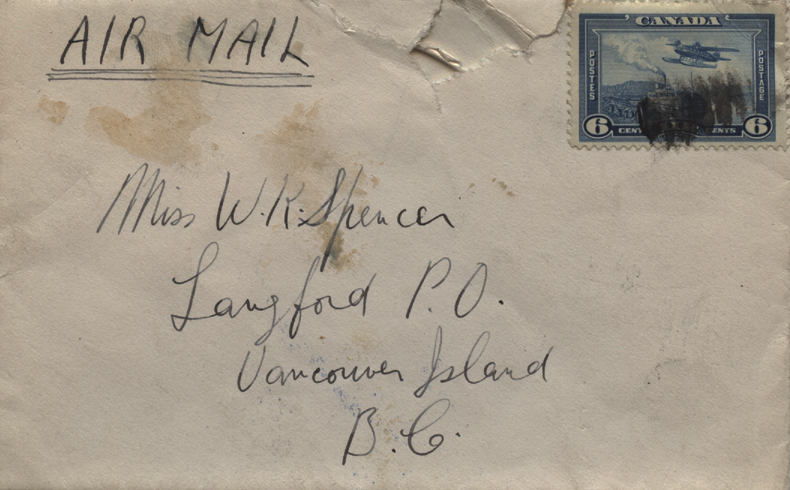 AIR MAIL
CANADA
POSTES
POSTAGE
6 CENTS 6
Miss W.K. Spencer
Langford P.O.
Vancouver Island
B.C.